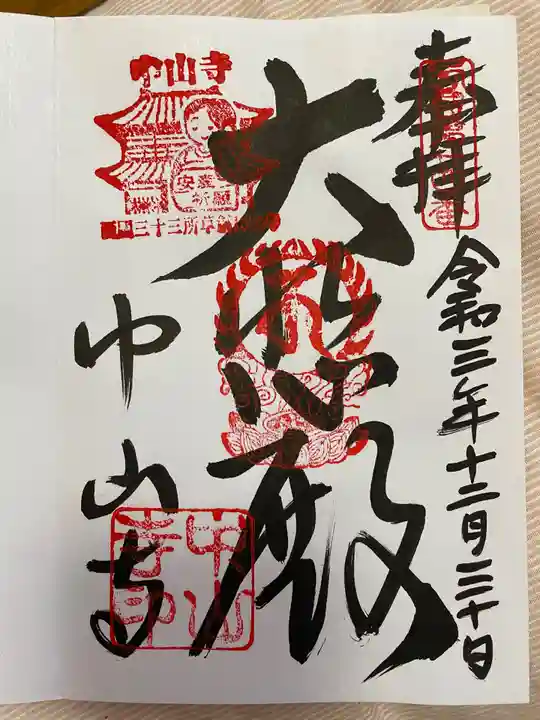 奉拝
令和三年十二月三十日
大悲殿
中山寺
中山寺
安産
祈願
西国三十三所草創
中山
寺印